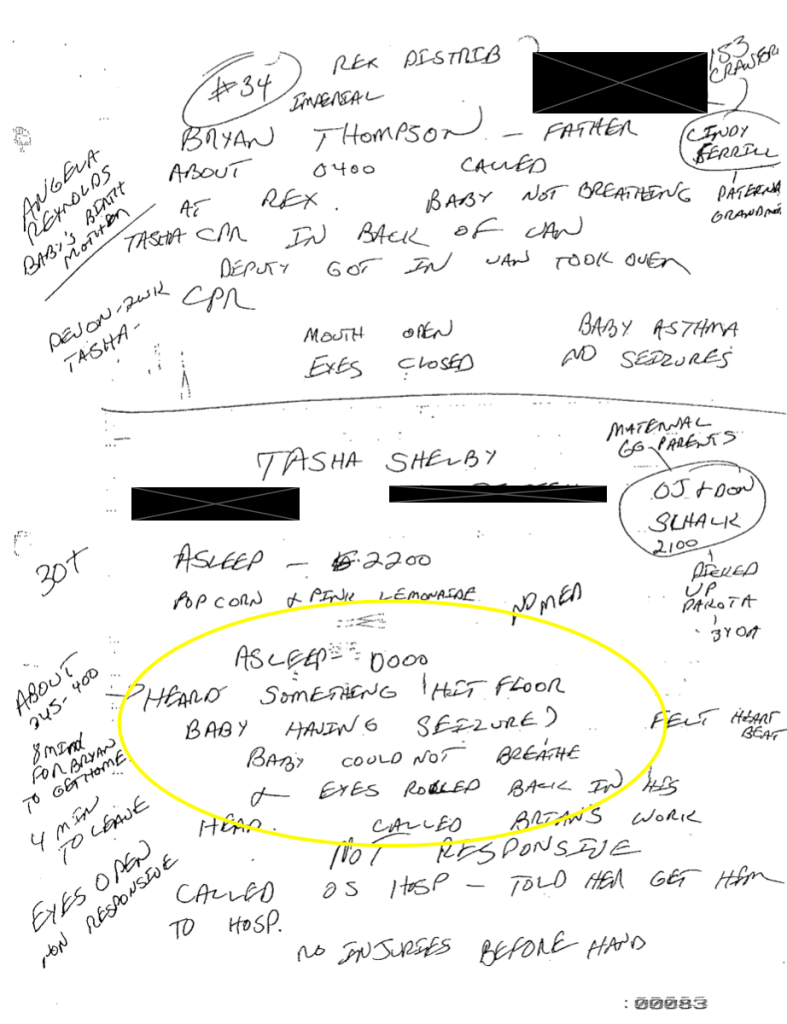 REX DISTRIB
#34
IMPERIAL
153
BRYAN THOMPSON - FATHER
CINDY
ABOUT 0400 CALLED
AT REX. BABY NOT BREATHING
PATERNAL
GRANDMO
ANGELA
REYNOLDS
BABY'S BIRTH
MOTHER
TASHA CPR IN BACK OF VAN
DEPUTY GOT IN VAN TOOK OVER
CPR
DEVON-2WK
TASHA-
MOUTH OPEN
BABY ASTHMA
EYES CLOSED
NO SEIZURES
TASHA SHELBY
MATERNAL
GG-PARENTS
OJ & DON
SCHALK
2100
PICKED
UP
DAKOTA
3YOA
30+
ASLEEP - 2200
POPCORN & PINK LEMONAIDE
NO MED
ASLEEP - 0000
ABOUT
345-400
HEARD SOMETHING HIT FLOOR
BABY HAVING SEIZURE)
FELT HEART
BEAT
BABY COULD NOT BREATHE
& EYES ROLLED BACK IN HIS
HEAD. CALLED BRIANS WORK
8 MIN
FOR BRYAN
TO GET HOME
4 MIN
TO LEAVE
NOT RESPONSIVE
EYES OPEN
NON RESPONSIVE
CALLED OS HOSP - TOLD HER GET HIM
TO HOSP.
NO INJURIES BEFORE HAND
:00083